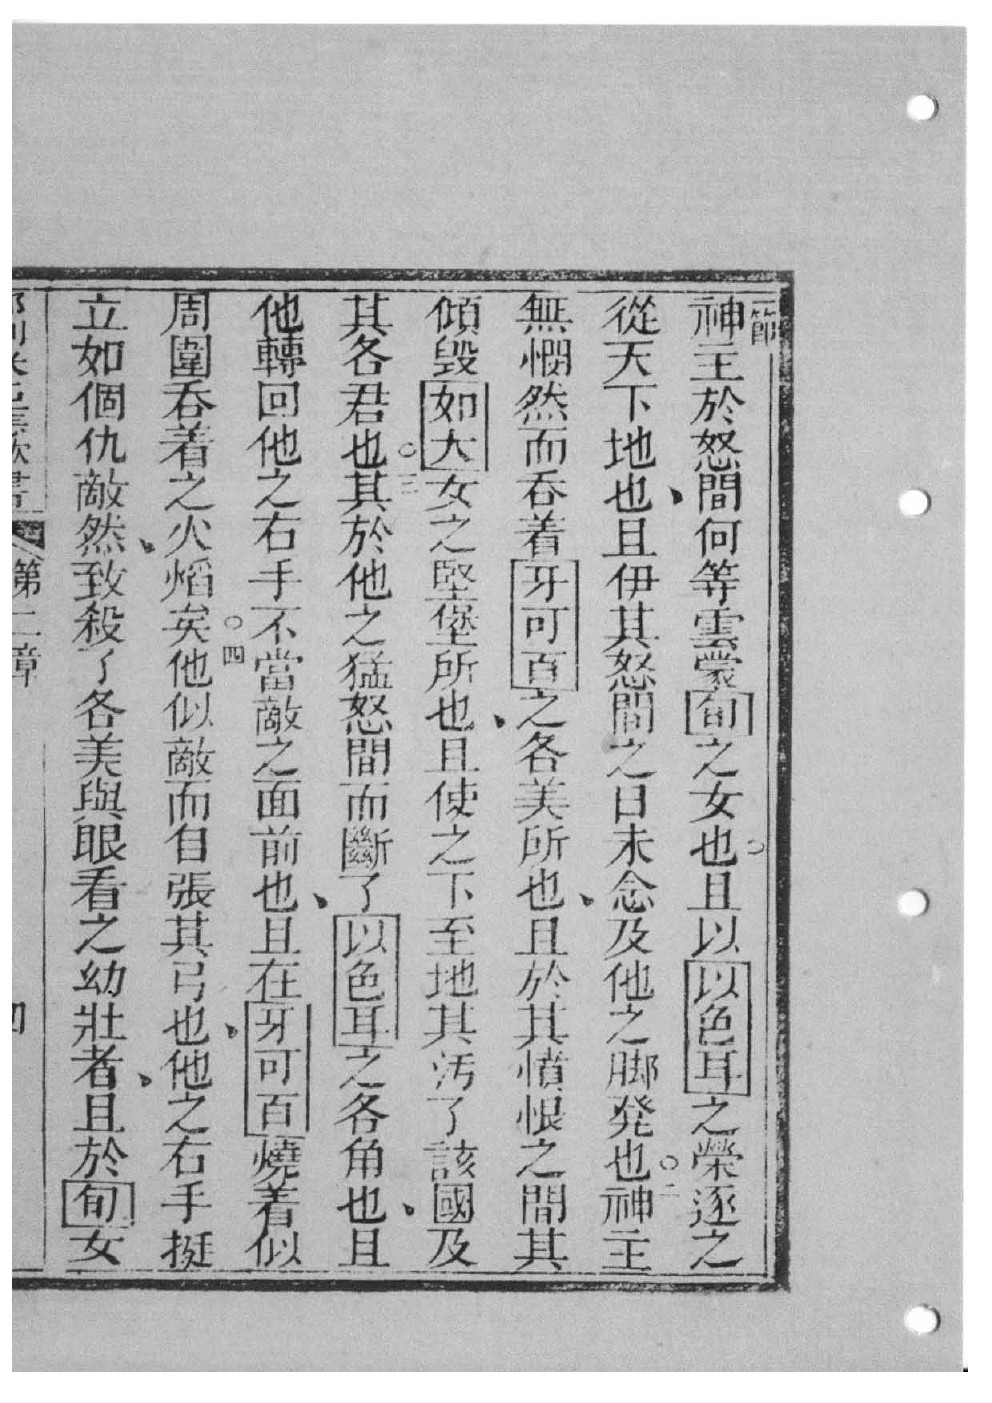 一節
神主於怒間何等雲蒙旬之女也○且以以色耳之榮逐之
從天下地也、且伊其怒間之日未念及他之脚発也○二神主
無憫然而吞着牙可百之各美所也、且於其憤恨之間其
傾毀如大女之堅堡所也、且使之下至地其污了該國及
其各君也○三其於他之猛怒間而斷了以色耳之各角也、且
他轉回他之右手不當敵之面前也、且在牙可百燒着似
周圍吞着之火熖矣○四他似敵而自張其弓也、他之右手挺
立如個仇敵然、致殺了各美與眼看之幼壯者、且於旬女
第二章
四